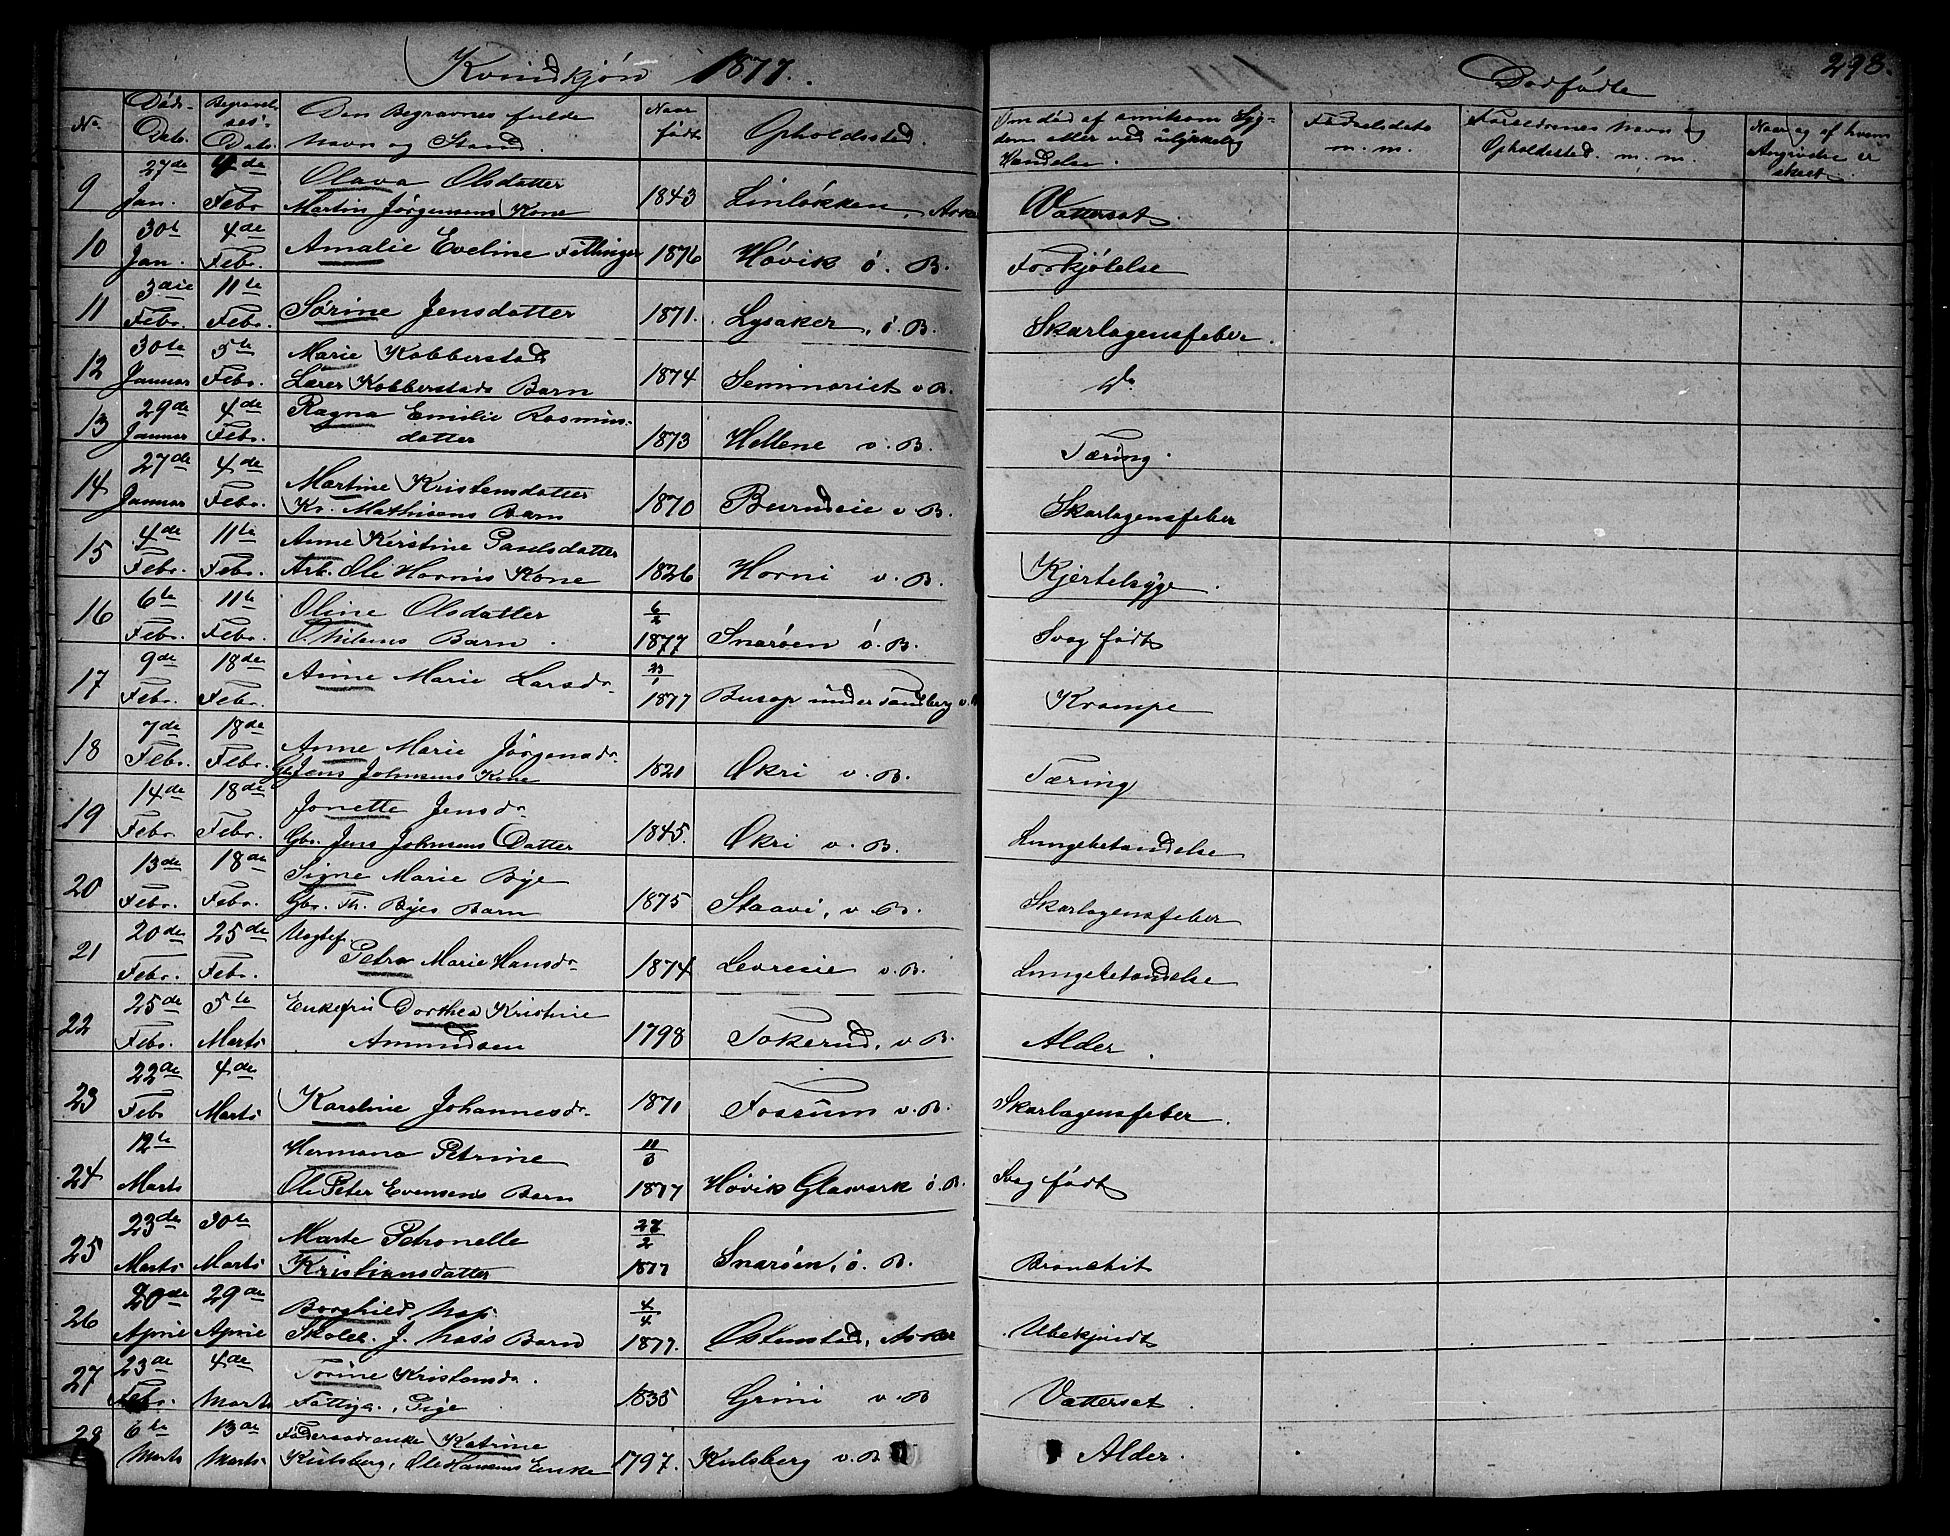 Kvindkjøn 1877.
Dødfødte
293.
No
Døds-
Dato.
Begravel-
ses-
Dato.
Den Begravnes fulde
Navn og Stand.
Naar
født
Opholdssted.
Om død af smitsom Syg-
dom eller ved ulykkelig
Hændelse.
Fødselsdato
m. m.
Forældrenes Navn og
Opholdssted. m. m.
Naar og af hvem
Angivelse er
skeet.
9 27de Jan. 4de Febr. Olava Olsdatter
Martin Jørgensens Kone 1843 Linløkken, Asker Vattersot.
10 30te Jan. 4de Febr. Amalie Eveline Fillinger 1876 Høvik ø. B. Forkjølelse
11 3die Febr. 11te Febr. Sørine Jensdatter 1871. Lysaker, ø. B. Skarlagensfeber.
12 30te Januar 5te Febr. Marie Kobberstad
Lærer Kobberstads Barn 1874 Seminariet v B. Do
13 29de Januar 4de Febr. Ragna Emilie Rasmus-
datter 1873 Hellene v. B. Tæring.
14 27de Januar 4de Febr. Martine Kristensdatter
Kr. Mathisens Barn 1870 Bærudeie v B. Skarlagensfeber
15 4de Febr. 11te Febr. Anne Kerstine Paulsdatter
Arb. Ole Hornis Kone 1826 Horni v. B. Kjertelsyge.
16 6te Febr. 11te Febr. Oline Olsdatter
O. Nilsens Barn. 6/2 1877 Snarøen ø. B. Svag født
17 9de Febr. 18de Febr. Anne Marie Larsdr. 23/1 1877 Busop under Tandberg v. B Krampe
18 7de Febr. 18de Febr. Anne Marie Jørgensdr.
Gb. Jens Johnsens Kone 1821 Økri v. B. Tæring
19 14de Febr. 18de Febr. Jonette Jensdr.
Gbr. Jens Johnsens Datter 1845. Økri v. B. Lungebetændelse
20 13de Febr. 18de Febr. Signe Marie Bye
Gbr. Th. Byes Barn 1875 Staavi, v. B. Skarlagensfeber
21 20de Febr. 25de Febr. Uægtef.
Petra Marie Hansdr. 1874 Levreeie v. B. Lungebetændelse
22 25de Febr. 5te Marts Enkefru Dorthea Kristine
Amundsen 1798 Tokerud, v B. Alder.
23 22de Febr 4de Marts Karoline Johannesdr. 1871 Fossum v. B. Skarlagensfeber.
24 12te Marts Hermana Petrine
Ole Peter Evensens Barn 11/3 1877 Høvik Glasværk ø. B. Svag født
25 23de Marts 30te Marts Marte Petronelle
Kristiansdatter 27/2 1877 Snarøen, ø. B. Bronchit
26 20de April 29de April Borghild Næss
Skolel. J. Næss Barn 4/4 1877. Østenstad, Asker Ubekjendt
27 23de Febr. 4de Marts Torine Kristensdr.
Fattiga., Pige 1835 Grini v. B Vattersot.
28 6te Marts 13de Marts Føderaadsenke Katrine
Kulsberg, Ole Hansens Enke 1797. Kulsberg v. B Alder.